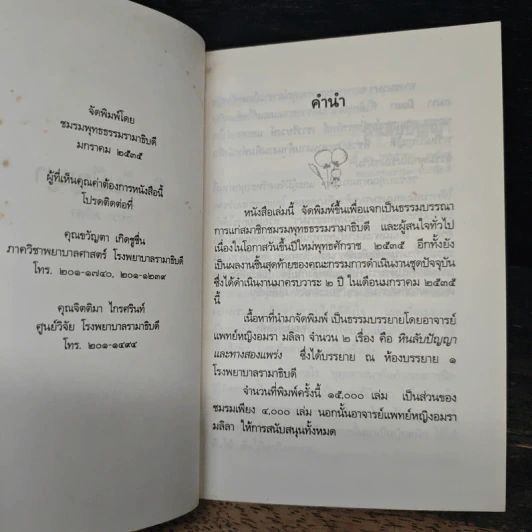 จัดพิมพ์โดย
ชมรมพุทธธรรมรามาธิบดี
มกราคม ๒๕๓๕
ผู้ที่เห็นคุณค่าต้องการหนังสือนี้
โปรดติดต่อที่
คุณขวัญตา เกิดชูชื่น
ภาควิชาพยาบาลศาสตร์ โรงพยาบาลรามาธิบดี
โทร. ๒๐๑-๑๗๔๐, ๒๐๑-๑๒๓๙
คุณจิตติมา ไกรศรินท์
ศูนย์วิจัย โรงพยาบาลรามาธิบดี
โทร. ๒๐๑-๑๔๙๔
คำนำ
หนังสือเล่มนี้ จัดพิมพ์ขึ้นเพื่อแจกเป็นธรรมบรรณา
การแก่สมาชิกชมรมพุทธธรรมรามาธิบดี และผู้สนใจทั่วไป
เนื่องในโอกาสวันขึ้นปีใหม่พุทธศักราช ๒๕๓๕ อีกทั้งยัง
เป็นผลงานชิ้นสุดท้ายของคณะกรรมการดำเนินงานชุดปัจจุบัน
ซึ่งได้ดำเนินงานมาครบวาระ ๒ ปี ในเดือนมกราคม ๒๕๓๕
นี้
เนื้อหาที่นำมาจัดพิมพ์ เป็นธรรมบรรยายโดยอาจารย์
แพทย์หญิงอมรา มลิลา จำนวน ๒ เรื่อง คือ หินลับปัญญา
และทางสองแพร่ง ซึ่งได้บรรยาย ณ ห้องบรรยาย ๑
โรงพยาบาลรามาธิบดี
จำนวนที่พิมพ์ครั้งนี้ ๑๕,๐๐๐ เล่ม เป็นส่วนของ
ชมรมเพียง ๔,๐๐๐ เล่ม นอกนั้นอาจารย์แพทย์หญิงอมรา
มลิลา ให้การสนับสนุนทั้งหมด